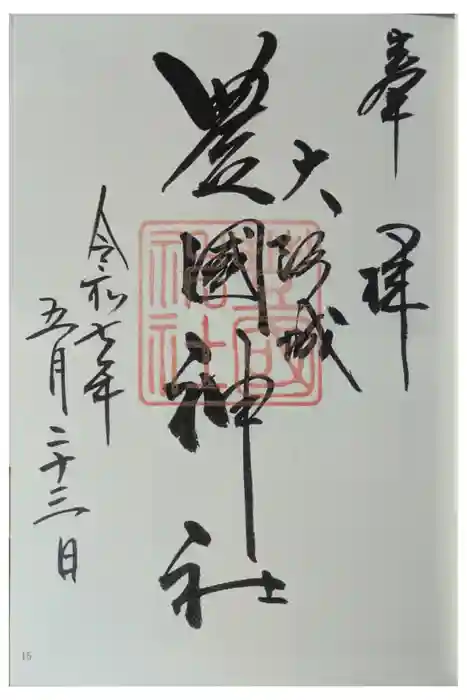 奉拝
大阪城
豊國神社
令和七年
五月二十三日
豊國神社
15